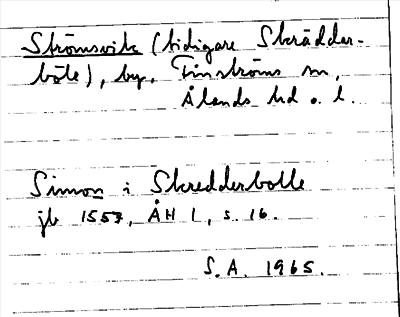 Strömsvik (tidigare Skrädder-
böle), by, Finströms sn,
Ålands hd o. l.
Simon i Skredderbolle
jb 1553, ÅH 1, s. 16.
S.A. 1965.